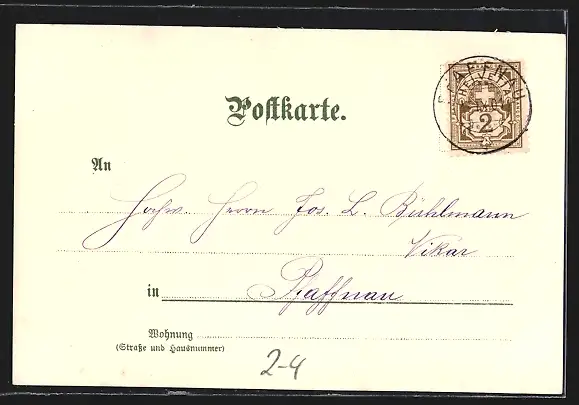 Postkarte.
HELVETIA
2
An
Hochw. Herrn Jos. L. Bühlmann
Vikar
in Pfaffnau
Wohnung
(Straße und Hausnummer)
2-4